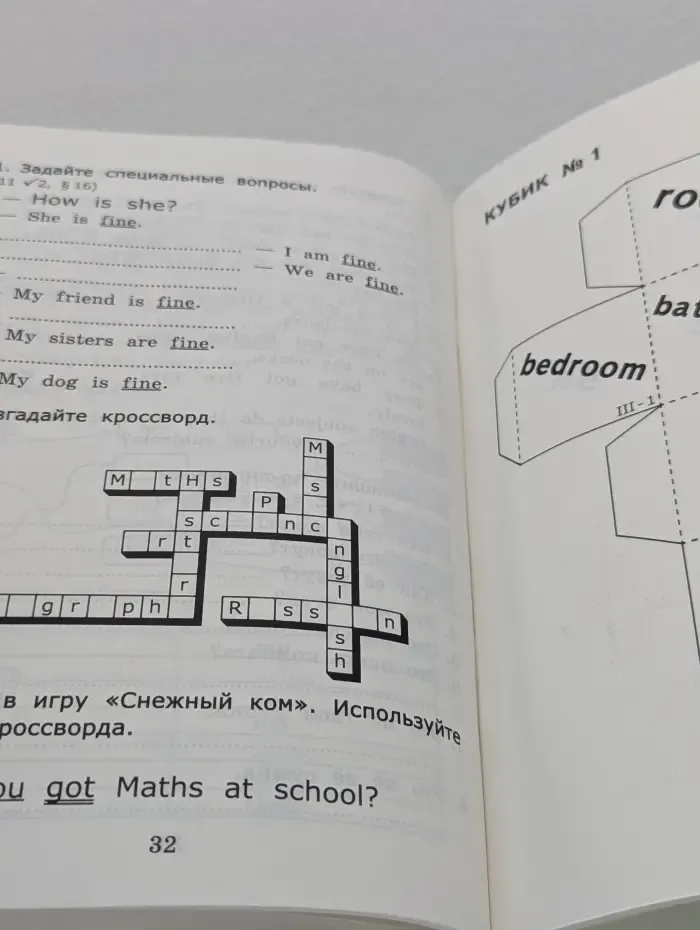 1. Задайте специальные вопросы.
✓2, § 16)
— How is she?
— She is fine.
— I am fine.
— We are fine.
My friend is fine.
My sisters are fine.
My dog is fine.
згадайте кроссворд.
M
M t H s s
P
s c n c
r t n
g
r l
g r p h R s s n
s
h
в игру «Снежный ком». Используйте
россворда.
ou got Maths at school?
32
КУБИК № 1
ro
bat
bedroom
III-1